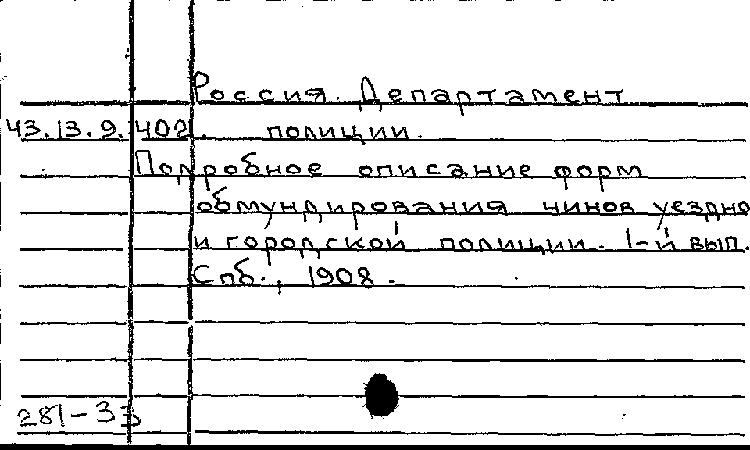 Россия. Департамент
43.13.9.402. полиции.
Подробное описание форм
обмундирования чинов уездно
и городской полиции. 1-й вып.
Спб., 1908.
281-33